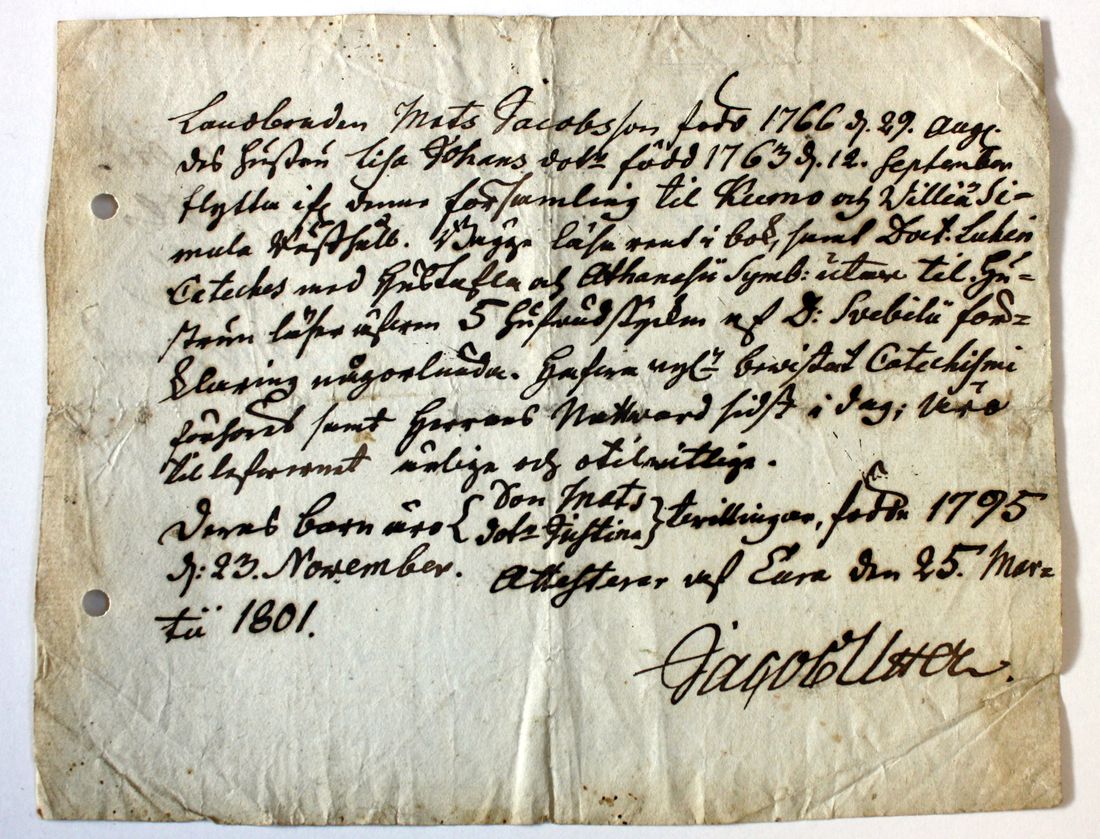 Landbonden Mats Jacobsson född 1766 d. 29. Aug.
des Hustru Lisa Johans dotr född 1763 d. 12. September
flytta ifr denna församling til Kumo och Villiä Si-
mula Rusthåll. Bägge läsa rent i bok, samt Doct. Luheri
Cateches med Hustafla och Athanasii Symb: utan til. Hu-
strun läser äfven 5 Hufvudstycken af D: Svebilii för-
klaring någorlunda. Hafva nyl. bevistat Catechismi
förhöret samt Herrans Nattvard sidst i dag; äro
til lefvernet ärlige och otilvitlige.
Deras barn äro { Son Mats
Dotr Justina } tvillingar, födde 1795
d: 23. November. Attesterar af Eura den 25. Mar-
tii 1801.
Jacob Utter.